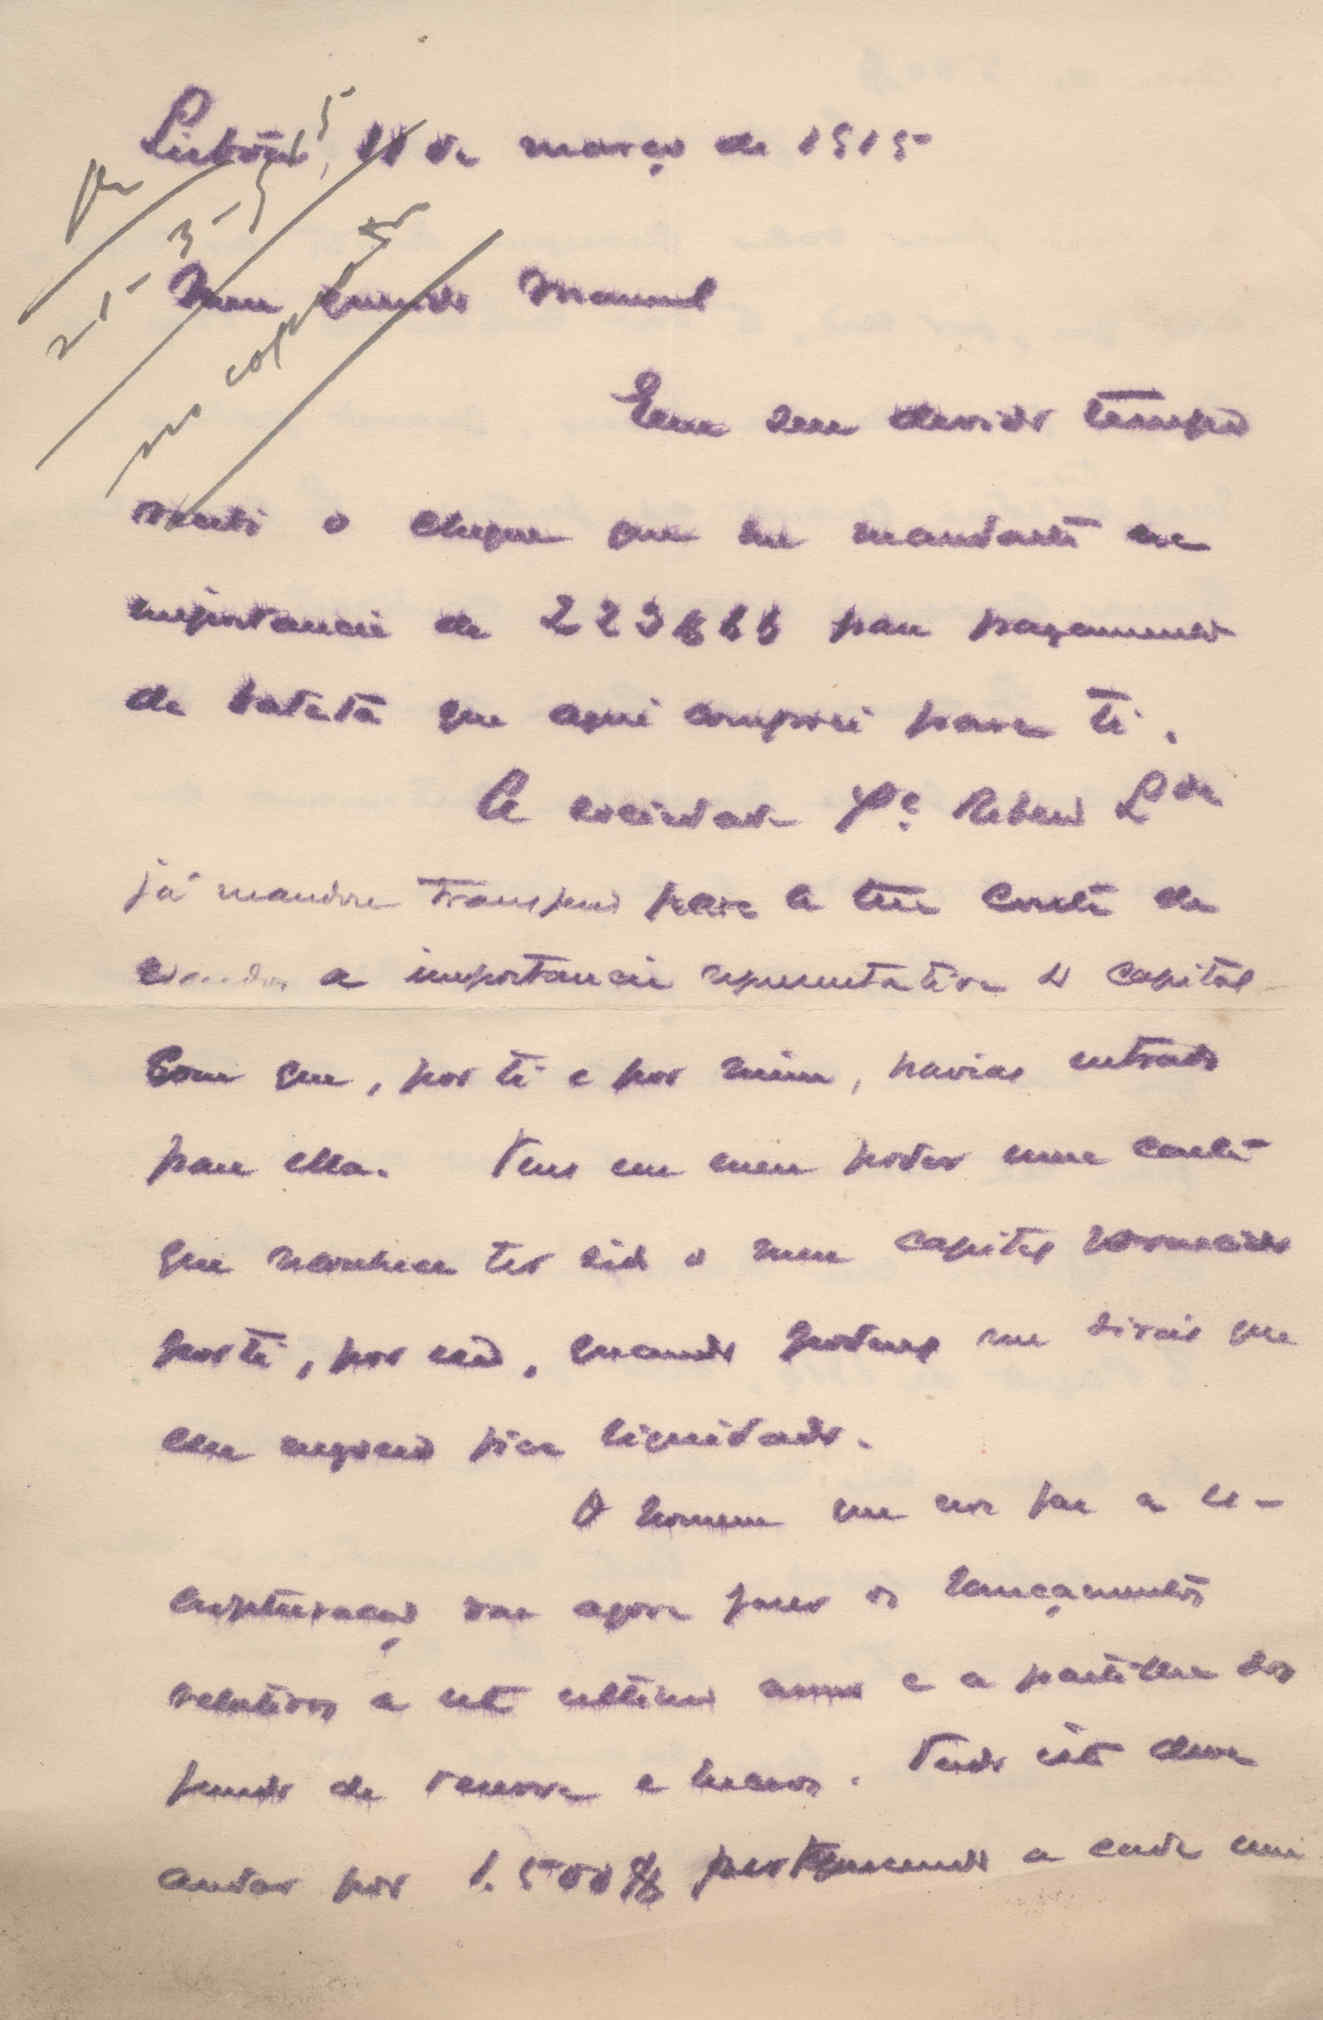 Lisbôa, 18 de março de 1915
21-3-915
no copiador
Meu querido Manuel
Em seu devido tempo
recebi o cheque que me mandaste na
importancia de 223$66 para pagamento
de batata que aqui comprei para ti.
A sociedade Rebelo L.da
já mandou transferir para a tua conta de
a importancia representativa do capital
com que, por ti e por mim, havias entrado
para ella. Tens em meu poder uma carta
que reconhece ter sido o meu capital fornecido
por ti, por isso, quando poderes me dirás que
esse negocio fica liquidado.
O homem que nos faz a es-
cripturação vae agora fazer os lançamentos
relativos a este ultimo anno e a partilha dos
fundo de reserva e lucros. Tudo isto deve
andar por 1.500$ pertencendo a cada um